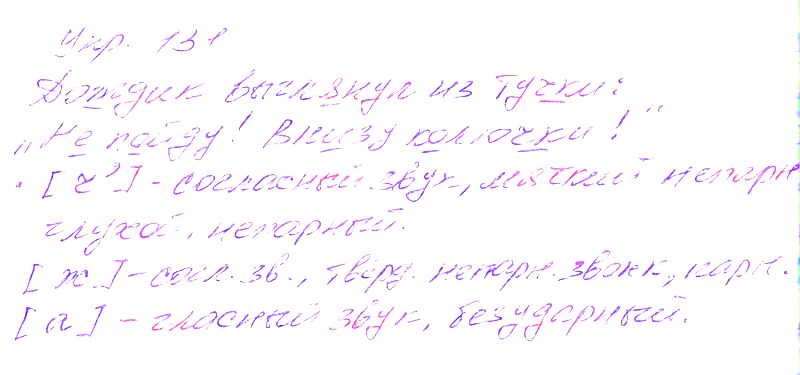 Упр. 131
Дождик выглянул из тучки:
„Не пойду! Внизу колючки!"
· [ч'] - согласный звук, мягкий непарн
глухой, непарный.
[ж] - согл. зв., тверд. непарн. звонк., парн.
[а] - гласный звук, безударный.